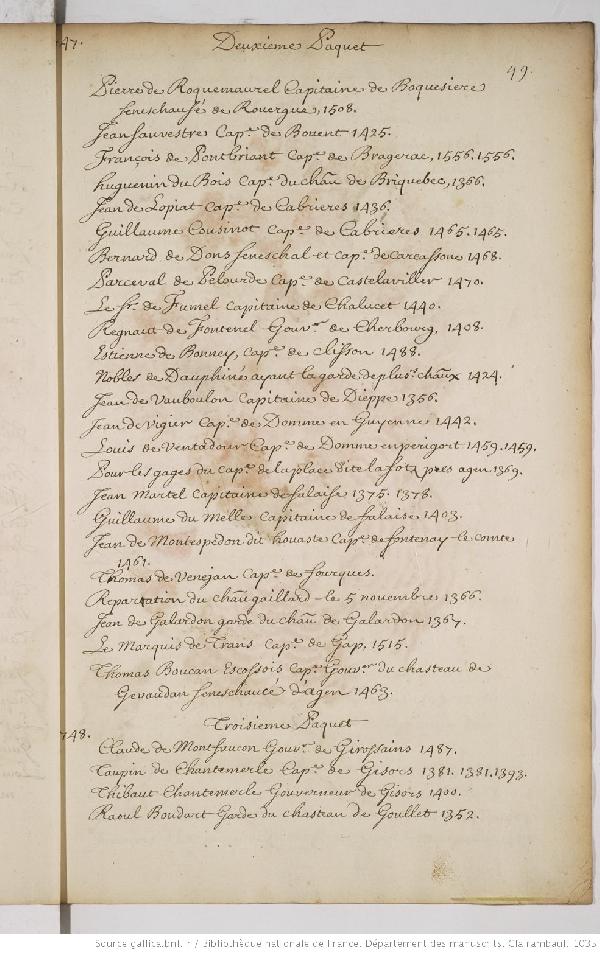 747. Deuxieme Paquet
49.
Pierre de Roquemaurel Capitaine de Roquesiere
seneschausé de Rouergue, 1508.
Jean Sauvestre Cap.ne de Bouent 1425.
François de Pontbriant Cap.ne de Bragerac, 1556. 1556.
huguenin du Bois Cap.ne du chau de Briquebec, 1366.
Jean de Lopiat cap.ne de Cabrieres 1436.
Guillaume Cousinot Cap.ne de Cabrieres 1465. 1465.
Bernard de Dons seneschal et cap.ne de carcassone 1468.
Parceval de Pelourde Cap.ne de Castelaviller 1470.
Le Sr. de Fumel Capitaine de Chalucet 1440.
Regnaut de Fontenel Gouvr. de Cherbourg, 1408.
Estienne de Bonney, cap.ne de clisson 1488.
Nobles de Dauphiné ayant la garde de plusrs chaux 1424.
Jean de Vauboulon Capitaine de Dieppe 1356.
Jean de Vigier Cap.ne de Domme en Guyenne 1442.
Louis de Ventadour Cap.ne de Domme en perigort 1459. 1459.
Pour les gages du cap.ne de la place dite lafox pres agen 1369.
Jean Martel Capitaine de falaise 1375. 1378.
Guillaume du Melle Capitaine de falaise 1403.
Jean de Montespedon dit houaste Cap.ne de fontenay-le comte
1461.
Thomas de Venejan cap.ne de fourques.
Repartation du chau gaillard le 5 novembre 1366.
Jean de Galardon garde du chau de Galardon 1367.
Le Marquis de Trans Cap.ne de Gap, 1515.
Thomas Boucan Escossois Cap.ne Gouvr. du chasteau de
Gevaudan seneschaucé d'agen 1463.
748. Troisieme Paquet
Claude de Montfaucon Gouvr. de Girossains 1487.
Taupin de Chantemerle Cap.ne de Gisors 1381. 1381. 1393.
Thibaut Chantemerle Gouverneur de Gisors 1400.
Raoul Boudart Garde du chasteau de Goullet 1352.
Source gallica.bnf.fr / Bibliothèque nationale de France. Département des manuscrits. Clairambault 1035